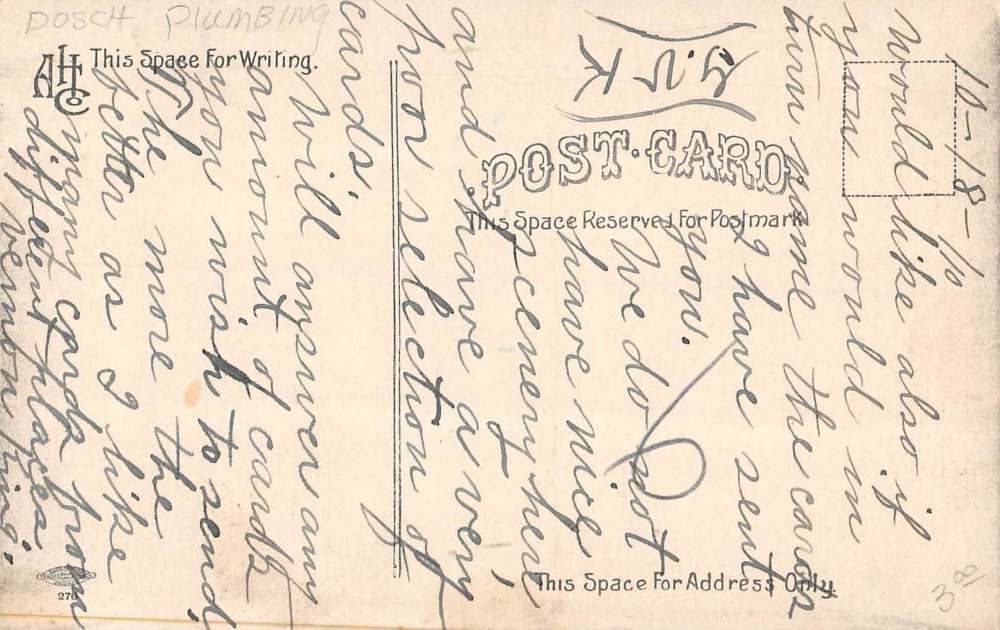 DOSCH PLUMBING
AHCo
This Space For Writing.
POST·CARD
This Space Reserved For Postmark
This Space For Address Only.
276
3.00
10-18-10
Would like also if
you would in
turn name the cards
I have sent
you.
We do not
have nice
scenery here
and have a very
poor selection of
cards.
Will answer any
amount of cards
you wish to send
The more the
better as I like
many cards from
different places